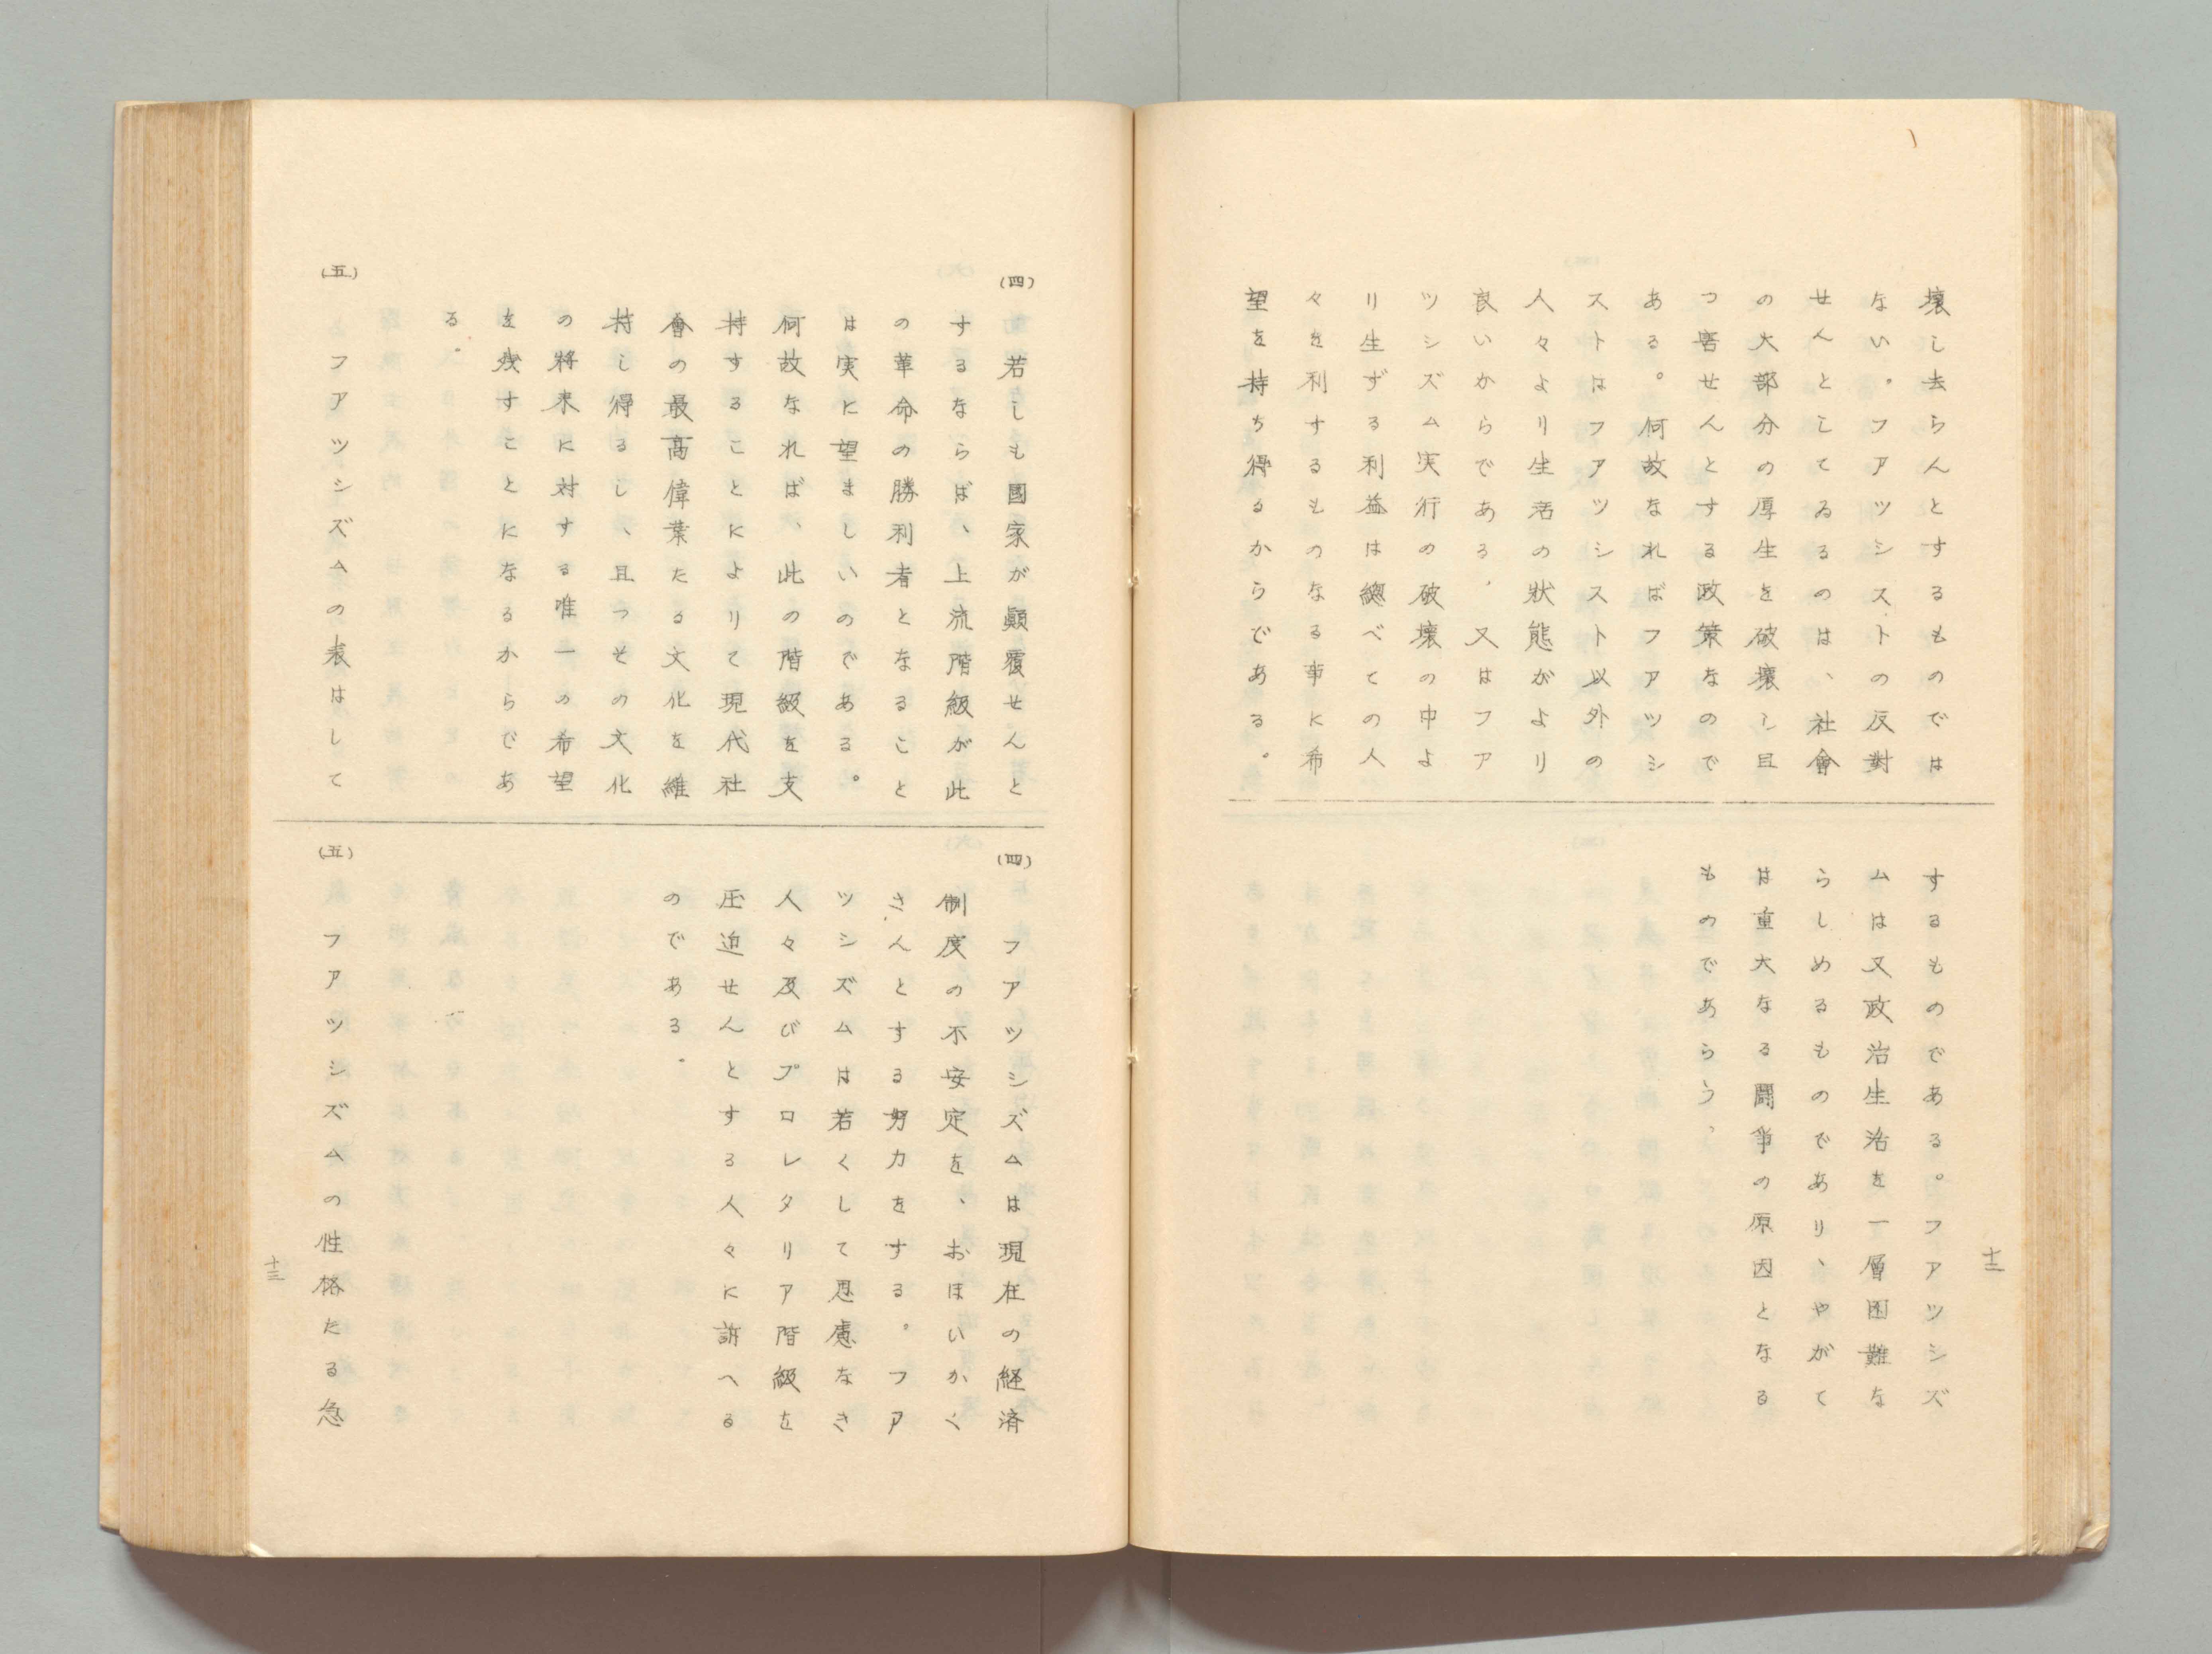 壊し去らんとするものでは
ない。フアツシストの反對
せんとしてゐるのは、社會
の大部分の厚生を破壊し且
つ害せんとする政策なので
ある。何故なればフアツシ
ストはフアツシスト以外の
人々より生活の狀態がより
良いからである、又はフア
ツシズム実行の破壊の中よ
り生ずる利益は總べての人
々を利するものなる事に希
望を持ち得るからである。
するものである。フアツシズ
ムは又政治生活を一層困難な
らしめるものであり、やがて
は重大なる鬪爭の原因となる
ものであらう、
十二
(四)
若しも國家が顚覆せんと
するならば、上流階級が此
の革命の勝利者となること
は実に望ましいのである。
何故なれば、此の階級を支
持することによりて現代社
會の最高偉業たる文化を維
持し得るし、且つその文化
の將来に対する唯一の希望
を残すことになるからであ
る。
(五)
フアツシズムの表はして
(四)
フアツシズムは現在の経済
制度の不安定を、おほいかく
さんとする努力をする。フア
ツシズムは若くして思慮なき
人々及びプロレタリア階級を
圧迫せんとする人々に訴へる
のである。
(五)
フアツシズムの性格たる急
十三